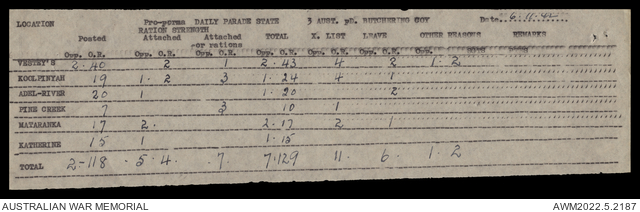 LOCATION Pro-porma DAILY PARADE STATE 3 AUST. pD. BUTCHERING COY Date 6.11.42
RATION STRENGTH
Posted Attached Attached for rations TOTAL X. LIST LEAVE OTHER REASONS REMARKS
Opp. O.R. Opp. O.R. Opp. O.R. Opp. O.R. Opp. O.R. Opp. O.R.
VESTEY'S 2-40 2 1 2-43 4 2 1-2
KOOLPINYAH 19 1-2 3 1-24 4 1
ADEL-RIVER 20 1 1-20 2
PINE CREEK 7 3 10 1
MATARANKA 17 2 2-17 2 1
KATHERINE 15 1 1-15
TOTAL 2-118 5 4 7 7-129 11 6 1 2
AUSTRALIAN WAR MEMORIAL AWM2022.5.2187